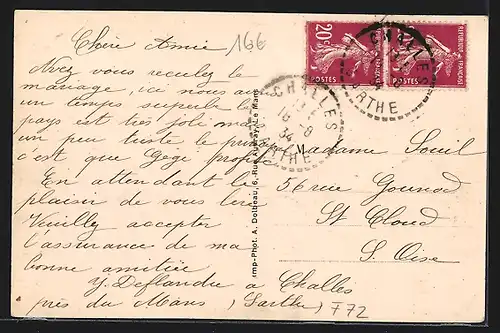 Chère Amie
166
Avez vous reculez le
mariage, ici nous av
un temps superbe le
pays est très joli mais
un peu triste le
c'est que Gégé profite
En attendant le
plaisir de vous lire
Veuillez accepter
l'assurance de ma
bonne amitiée
Y. Deflandre à Challes
près du Mans (Sarthe) F72
Imp.-Phot. A. Dolbeau, 6, Rue Le Mans
20c POSTES
POSTES
REPUBLIQUE FRANÇAISE
CHALLES
SARTHE
CHALLES
18 -8
34
SARTHE
Madame Souil
56 rue Gounod
St Cloud
S. Oise